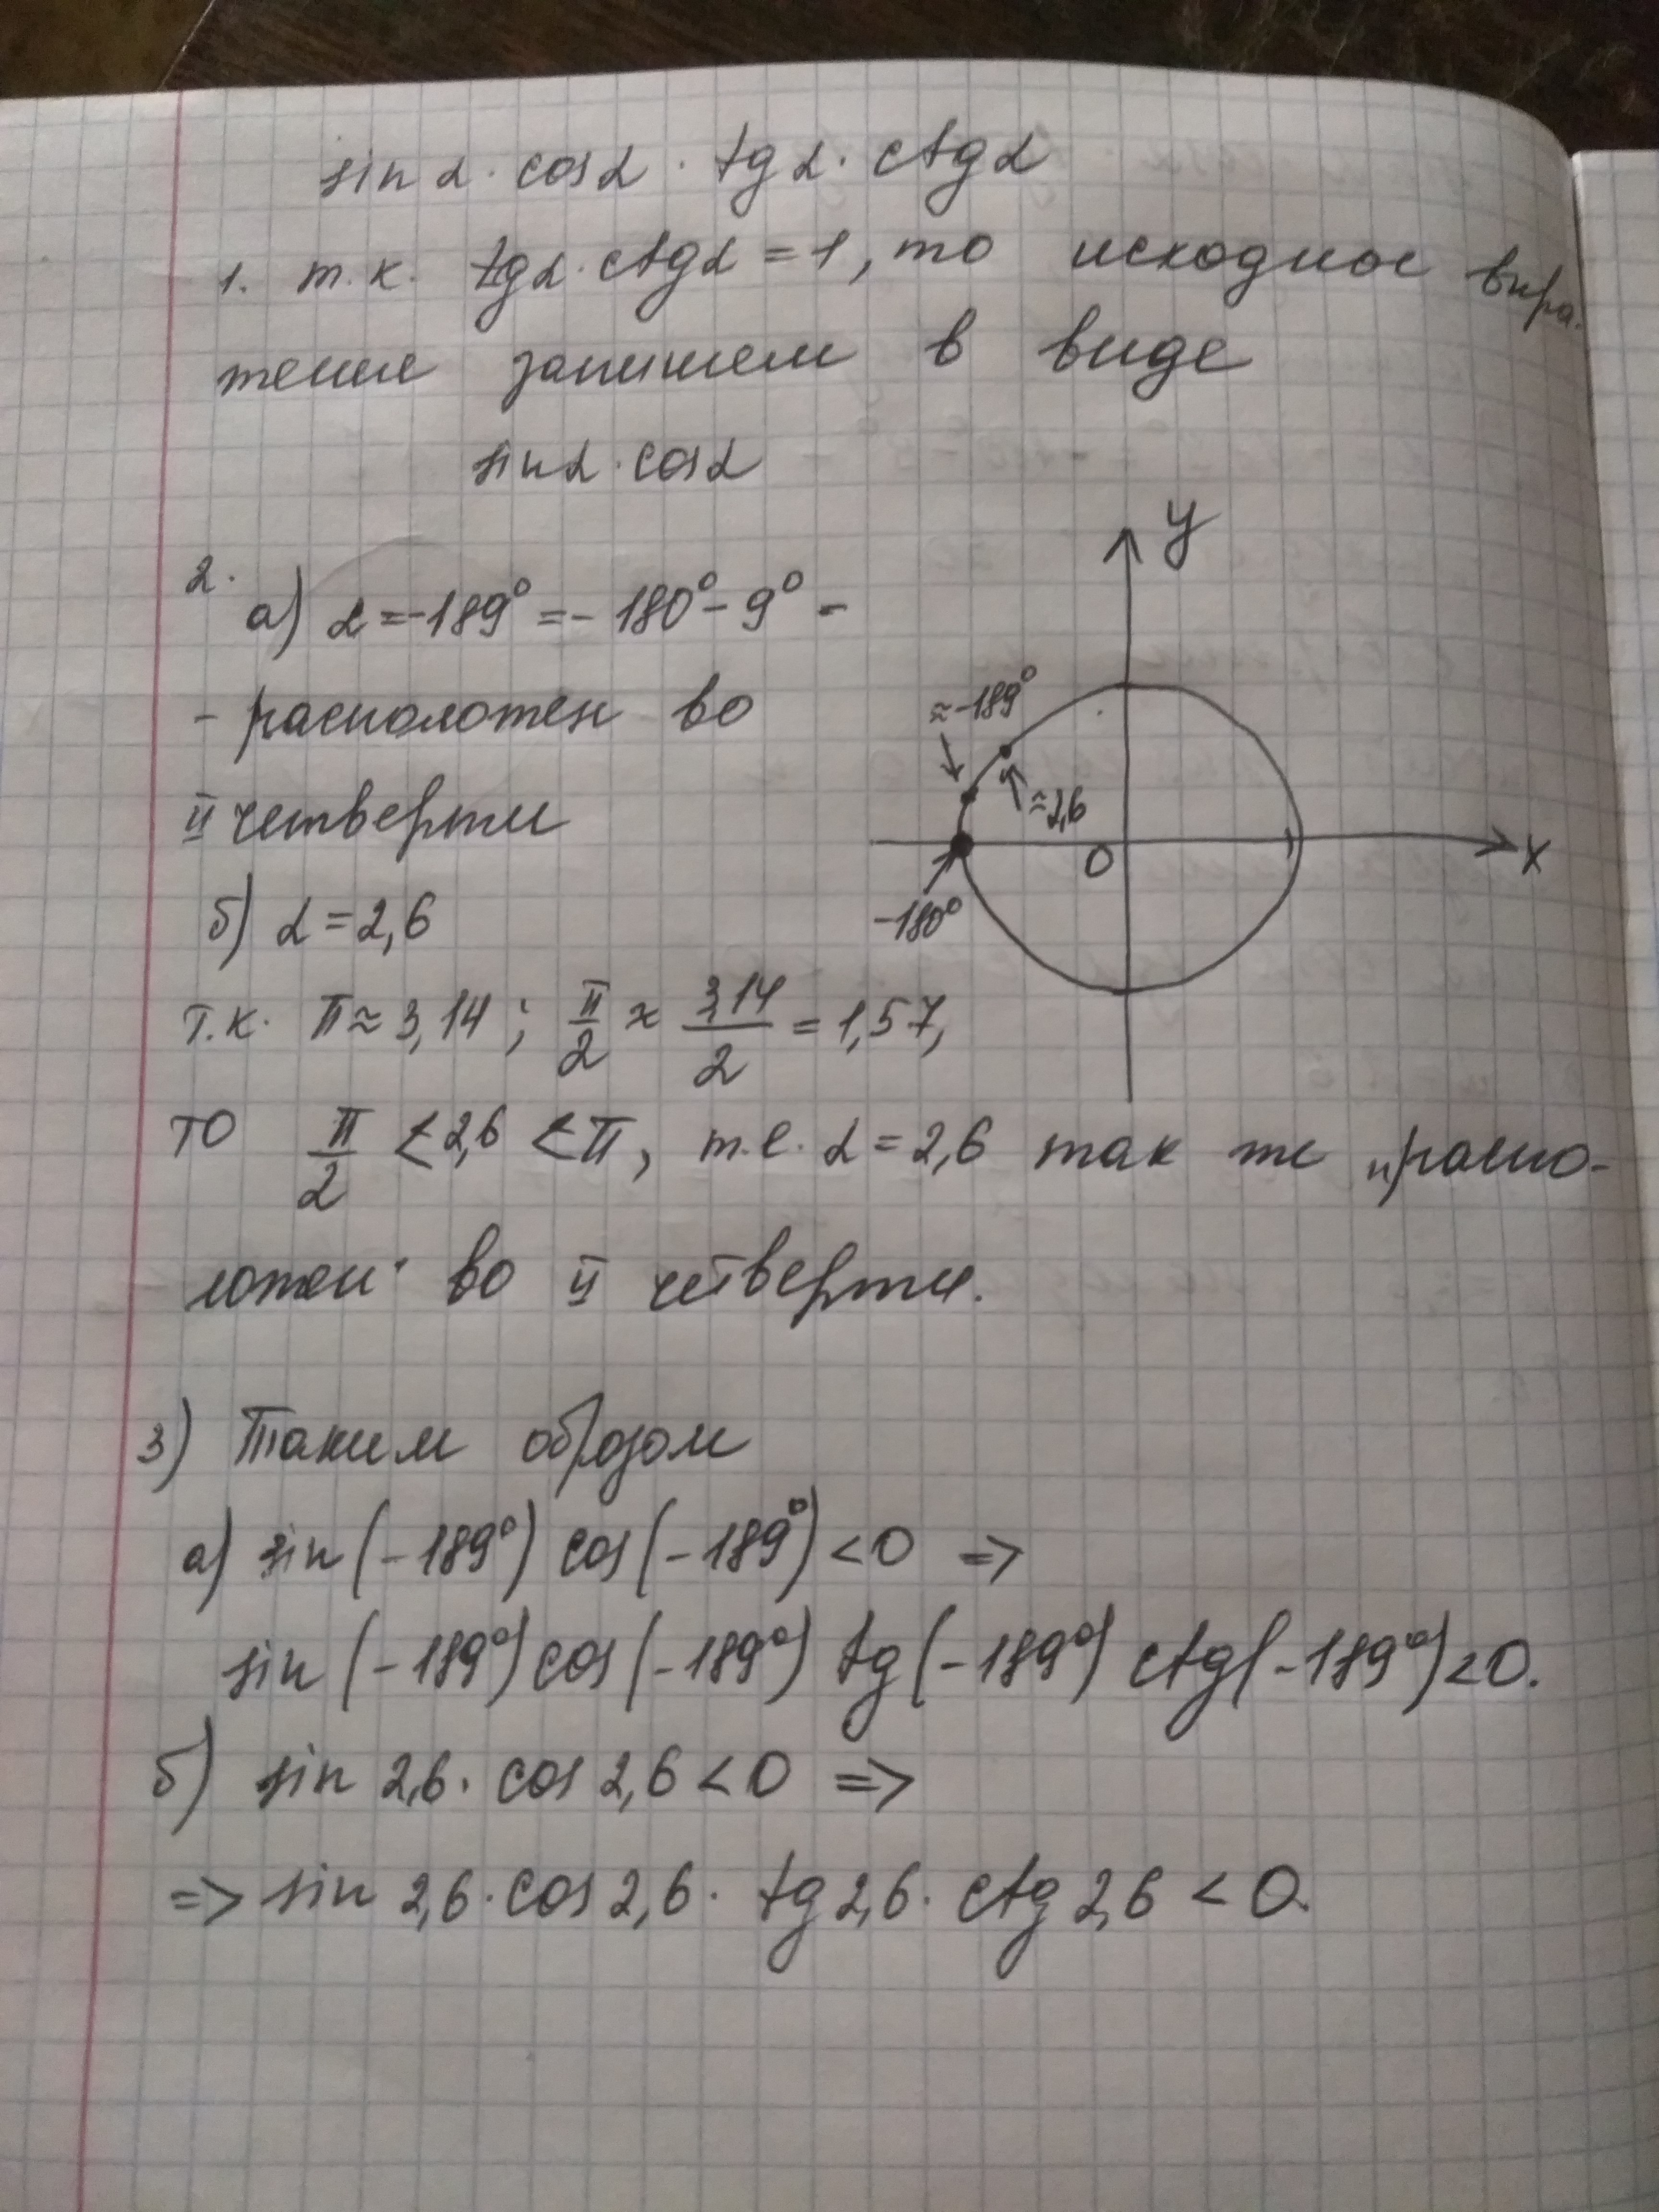 sin α · cos α · tg α · ctg α
1. т.к. tg α · ctg α = 1, то исходное выра-
жение запишем в виде
sin α · cos α
2.
а) α = -189° = - 180° - 9° -
- расположен во
II четверти
б) α = 2,6
т.к. π ≈ 3,14 ; π/2 ≈ 3,14/2 = 1,57,
то π/2 < 2,6 < π, т.е. α = 2,6 так же распо-
ложен во II четверти.
y
≈-189°
≈2,6
0
x
-180°
3) Таким образом
а) sin (-189°) cos (-189°) < 0 =>
sin (-189°) cos (-189°) tg (-189°) ctg (-189°) < 0.
б) sin 2,6 · cos 2,6 < 0 =>
=> sin 2,6 · cos 2,6 · tg 2,6 · ctg 2,6 < 0.